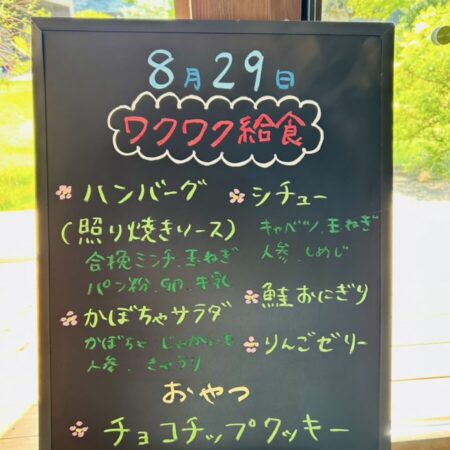 8月29日
ワクワク給食
ハンバーグ
(照り焼きソース)
合挽ミンチ.玉ねぎ
パン粉.卵.牛乳
かぼちゃサラダ
かぼちゃ じゃがいも
人参.きゅうり
シチュー
キャベツ.玉ねぎ
人参.しめじ
鮭おにぎり
りんごゼリー
おやつ
チョコチップクッキー